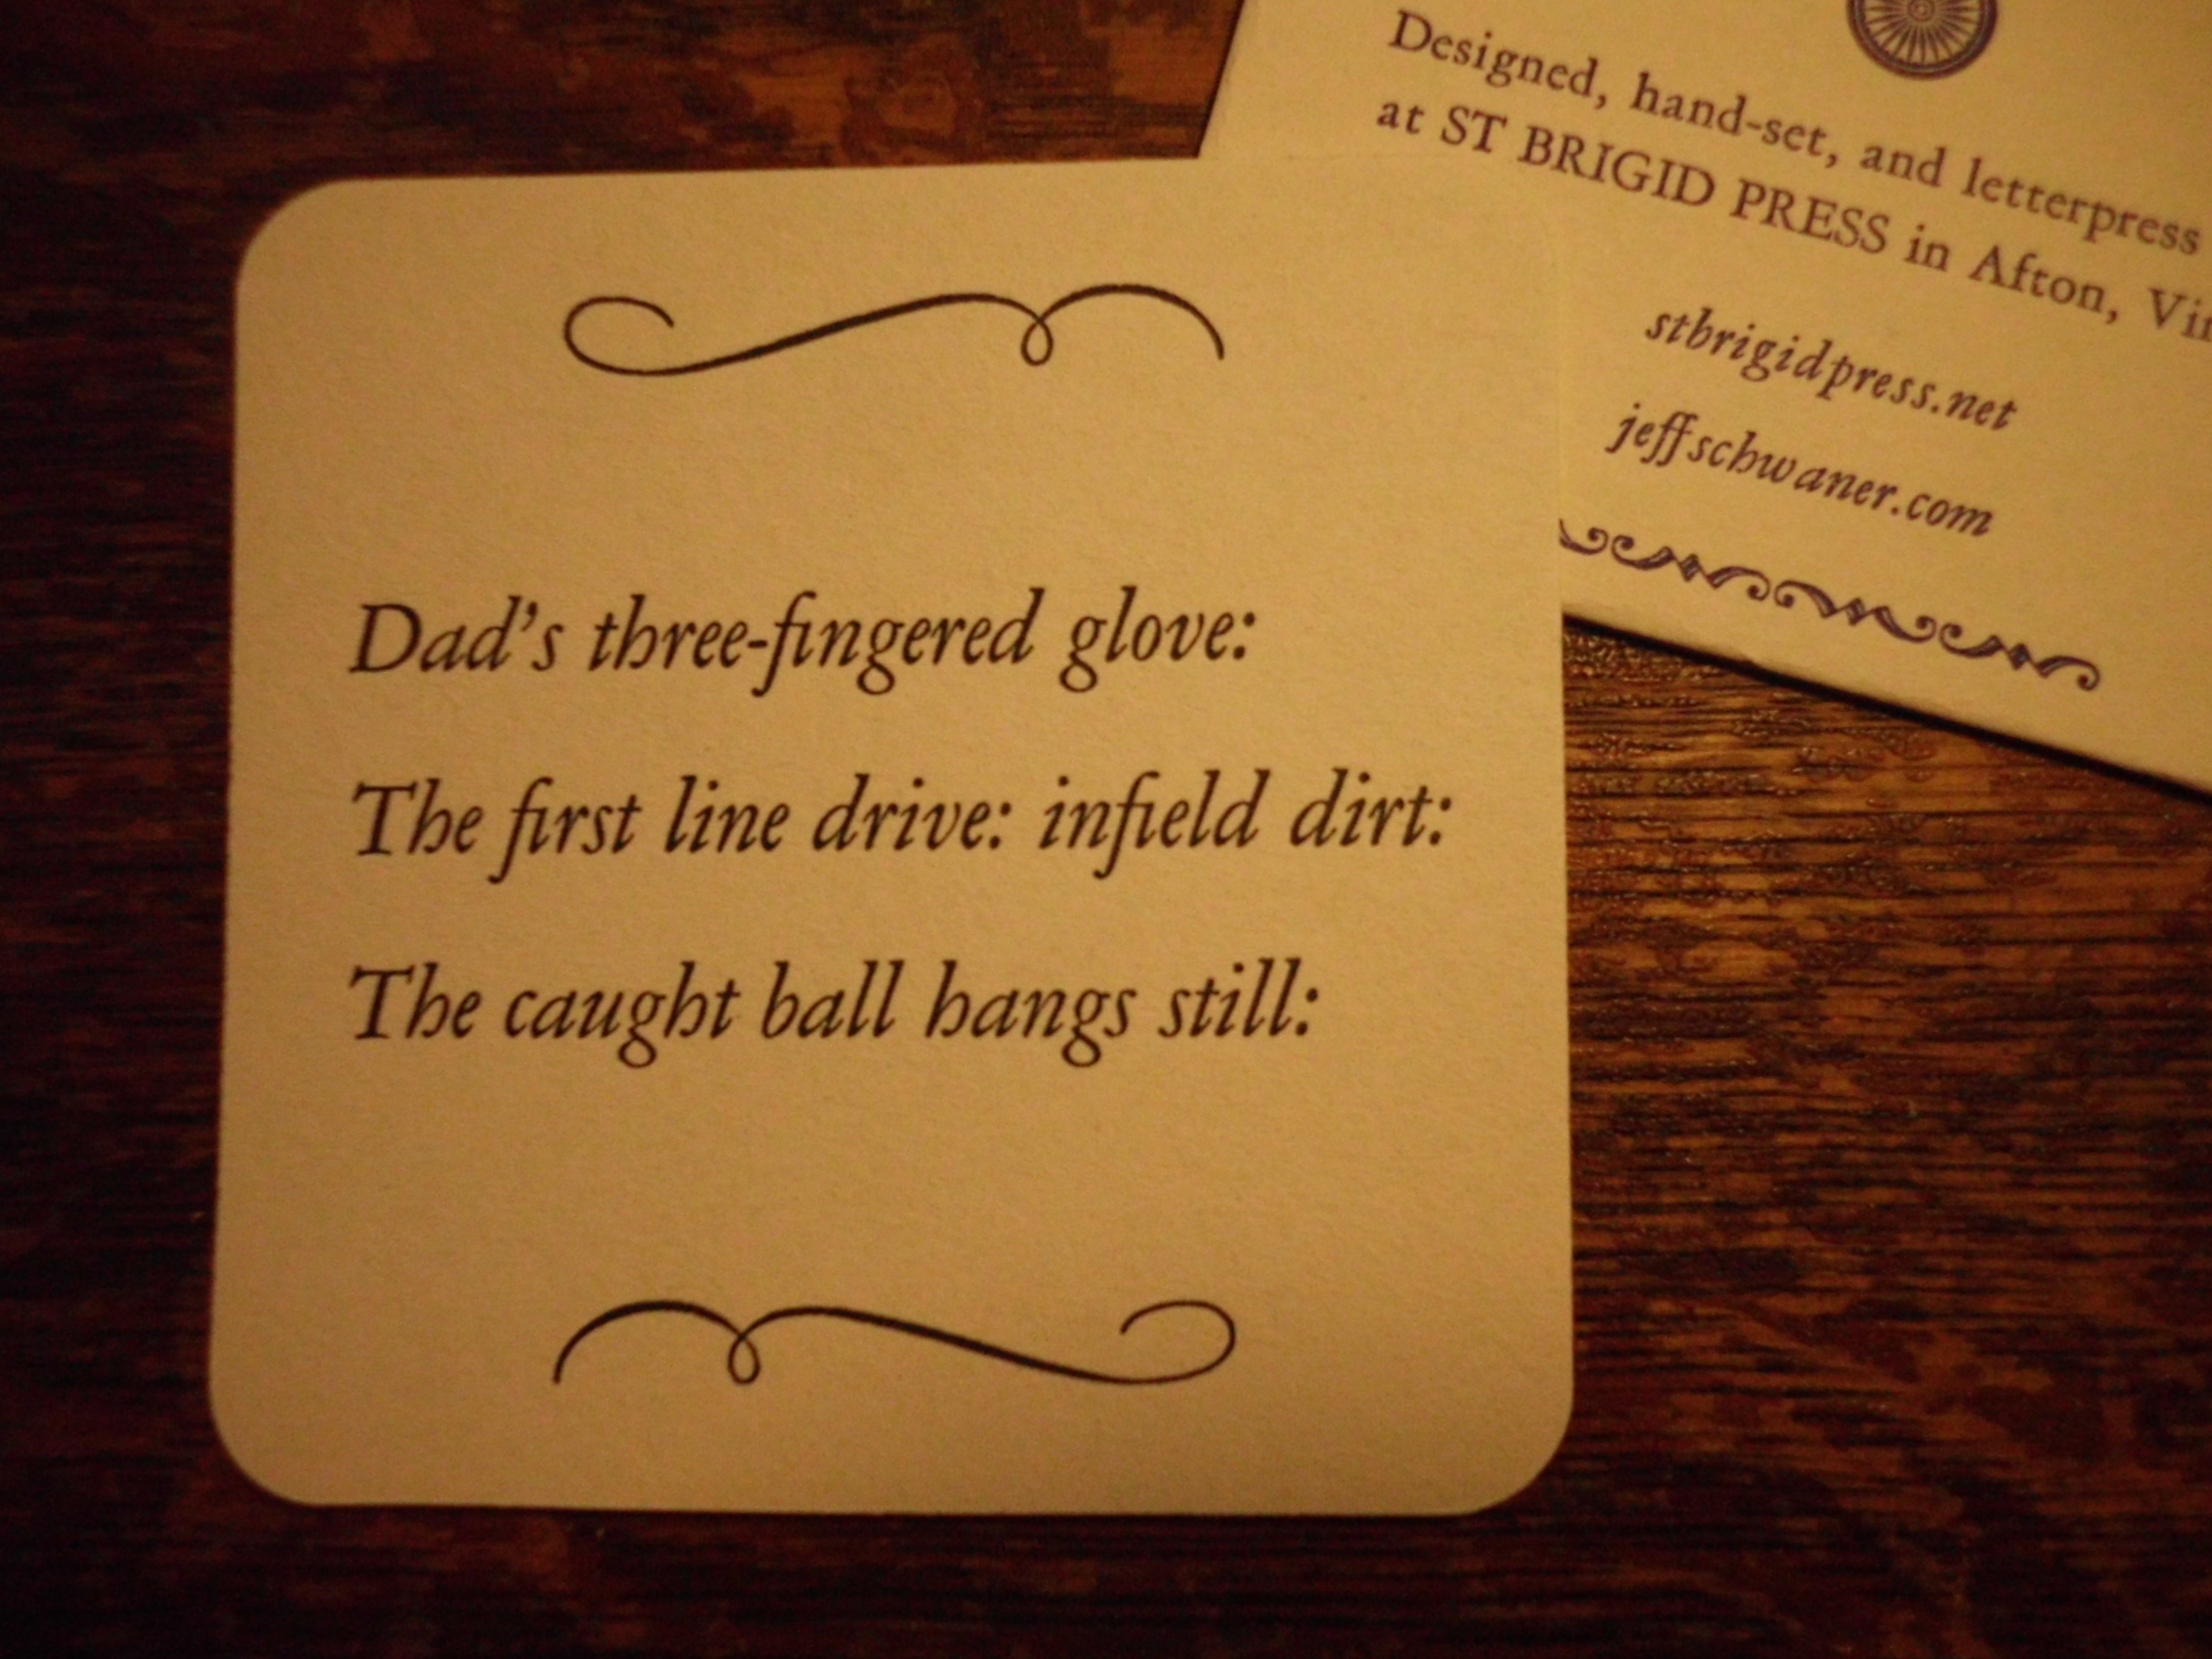 Dad's three-fingered glove:
The first line drive: infield dirt:
The caught ball hangs still:
Designed, hand-set, and letterpress
at ST BRIGID PRESS in Afton,
stbrigidpress.net
jeffschwaner.com